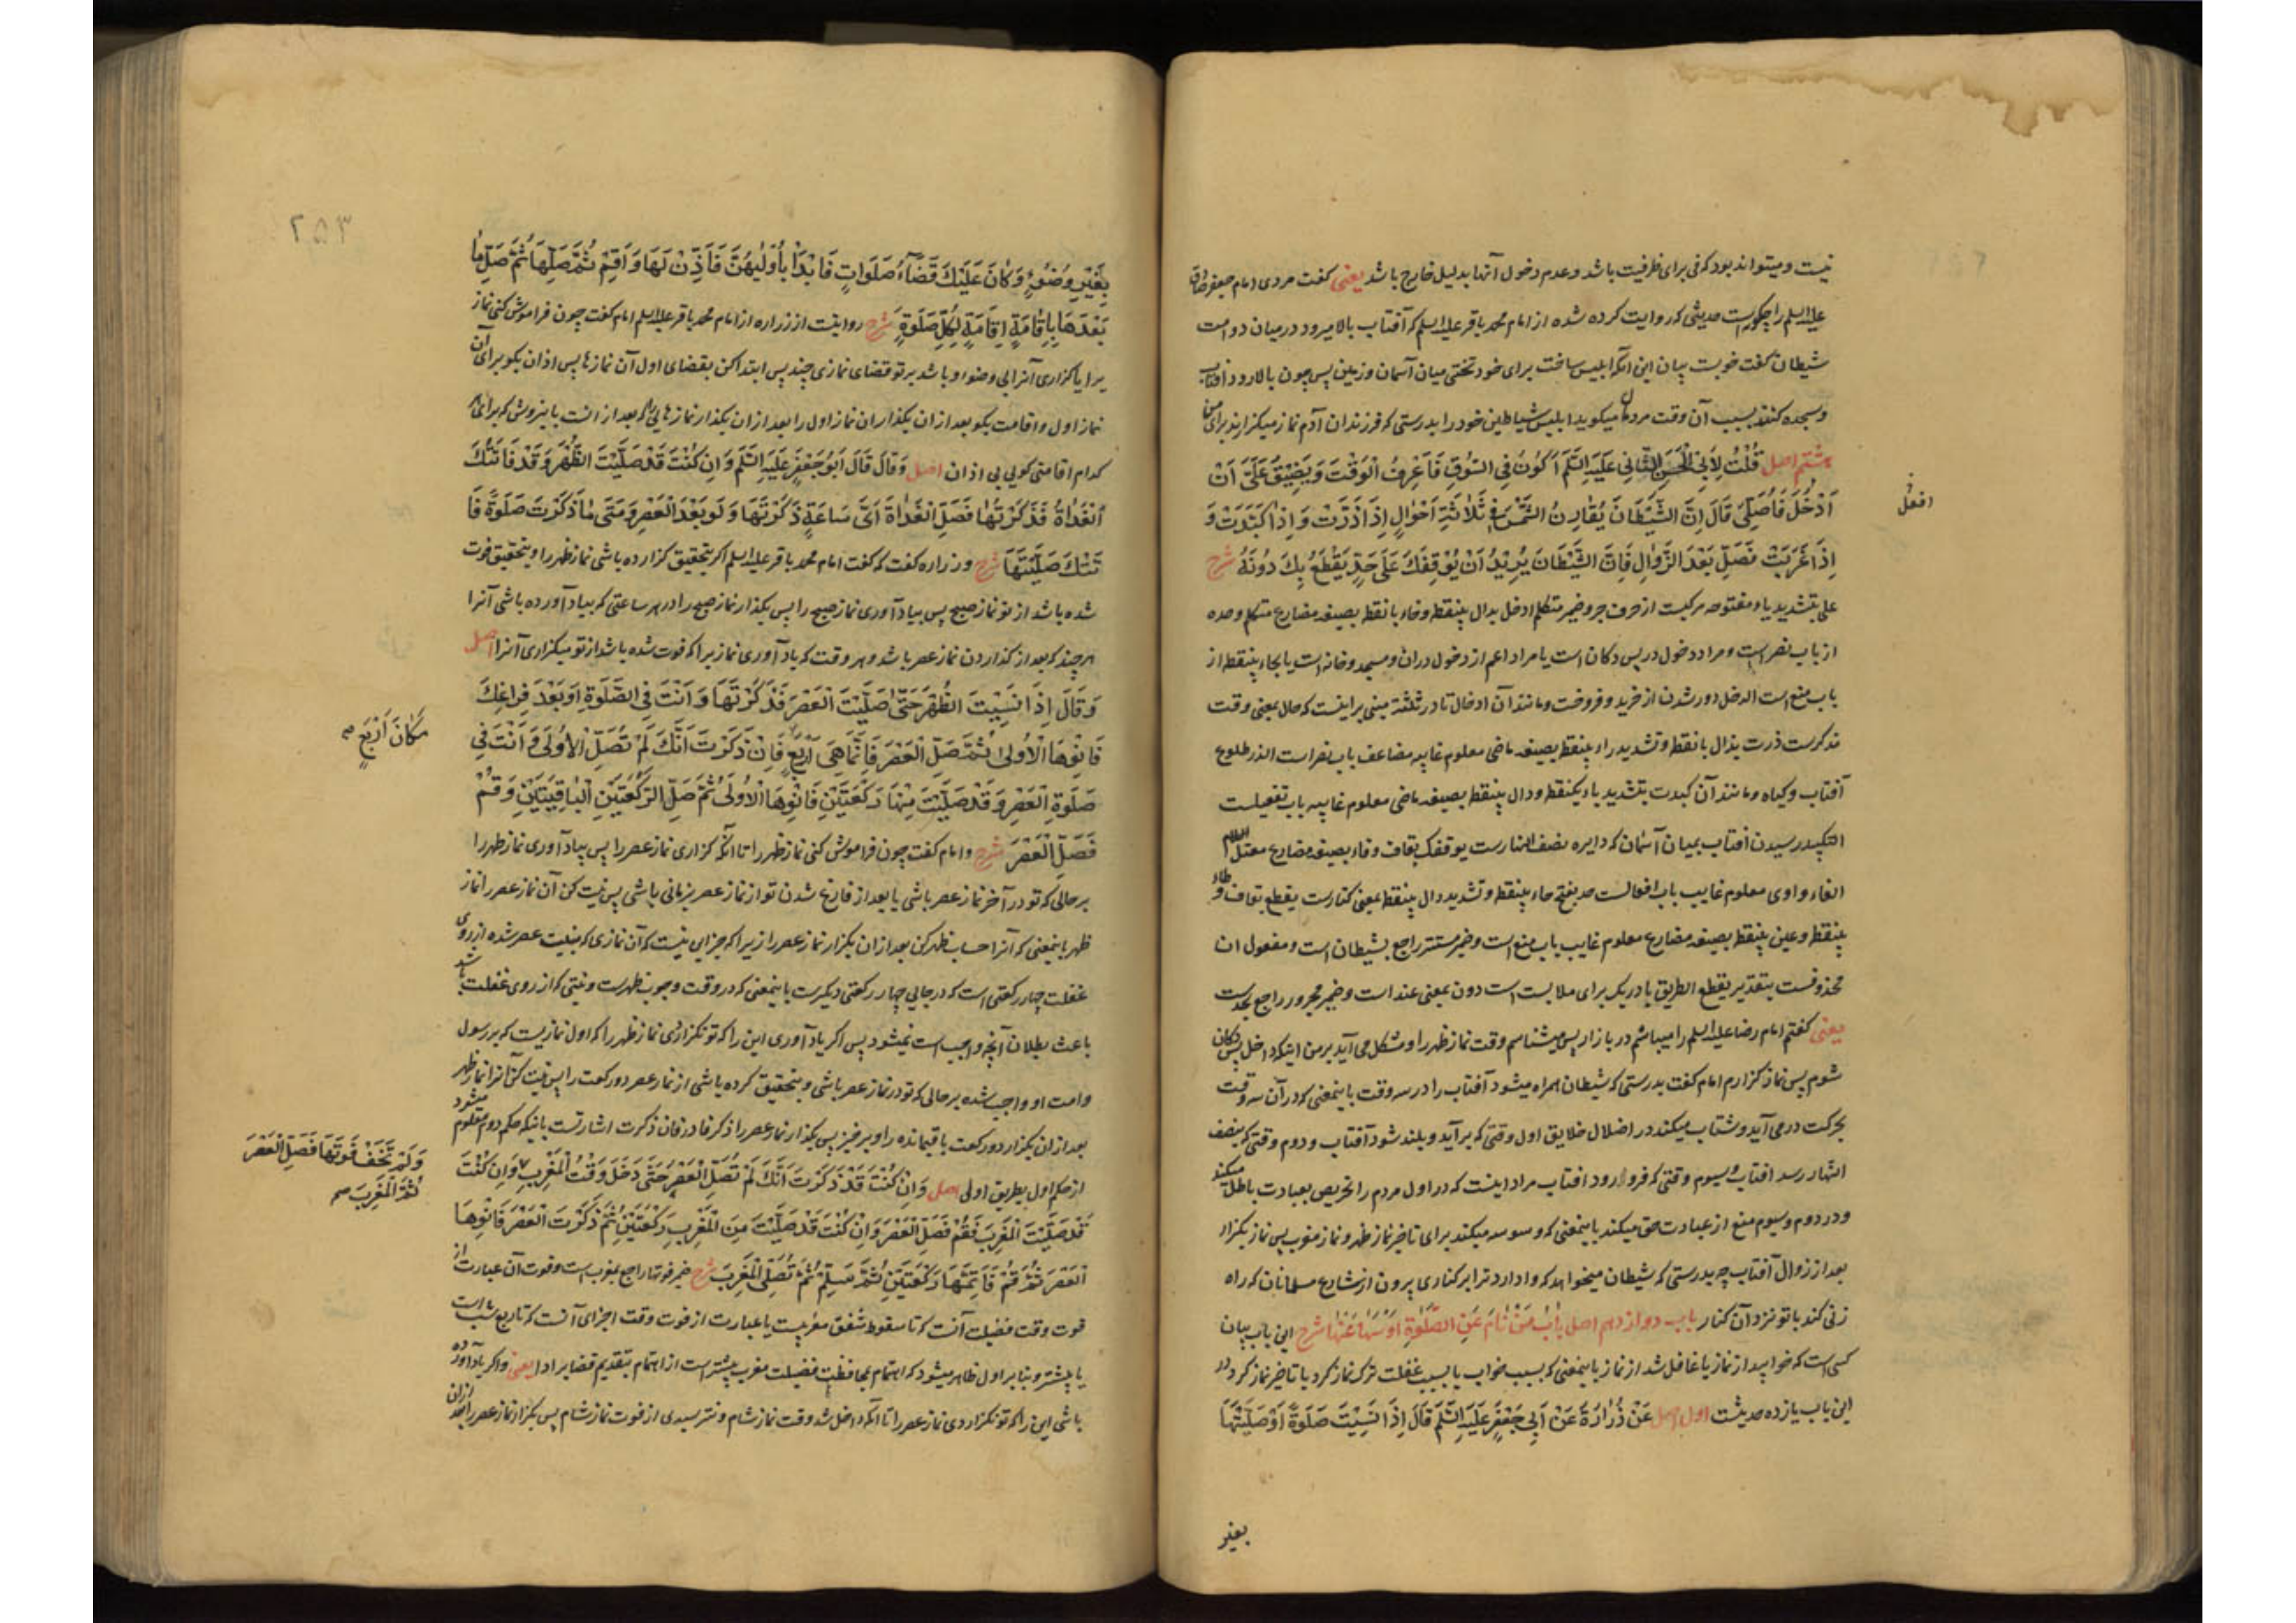 نیست و میتواند بود که فی برای ظرفیت باشد و عدم دخول آنها بدلیل خارج باشد یعنی گفت مردی امام جعفر صادق
علیه السلم را چگونه است حدیثی که روایت کرده شده از امام محمد باقر علیه السلم که آفتاب بالا میرود در میان دو است
شیطان گفت خوبست بیان این آنکه ابلیس ساخت برای خود تختی میان آسمان و زمین پس چون بالا رود آفتاب
و سجده کنند بسبب آن وقت مردمان میگوید ابلیس شیاطین خود را بدرستی که فرزندان آدم نماز میگزارند برای من
هشتم اصل قُلْتُ لِأَبِی الْحَسَنِ الثَّانِی عَلَیْهِ السَّلَم أَکُونُ فِی السُّوقِ فَأَعْرِفُ الْوَقْتَ وَیَضِیقُ عَلَیَّ أَنْ
أَدْخُلَ فَأُصَلِّیَ قَالَ إِنَّ الشَّیْطَانَ یُقَارِنُ الشَّمْسَ فِی ثَلَاثَةِ أَحْوَالٍ إِذَا ذَرَّتْ وَإِذَا کَبَّدَتْ وَ
إِذَا غَرَبَتْ فَصَلِّ بَعْدَ الزَّوَالِ فَإِنَّ الشَّیْطَانَ یُرِیدُ أَنْ یُوقِفَکَ عَلَی حَدٍّ یَقْطَعُ بِکَ دُونَهُ شرح
علی بتشدید یاء مفتوحه مرکبست از حرف جر و ضمیر متکلم ادخل بدال بینقطه و خاء با نقطه بصیغه مضارع متکلم وحده
از باب نصر است و مراد دخول در پس دکان است یا مراد اعم از دخول دران و مسجد و خانه است یا بحاء بینقطه از
باب منع است الدخل دور شدن از خرید و فروخت و مانند آن ادخال تا در ثلثة مبنی بر اینست که حال بمعنی وقت
مذکرست ذرت بذال با نقطه و تشدید راء بینقطه بصیغه ماضی معلوم غایبه مضاعف باب نصر است الذر طلوع
آفتاب و گیاه و مانند آن کبدت بتشدید باء یکنقطه و دال بینقطه بصیغه ماضی معلوم غایبه باب تفعیلست
التکبید رسیدن آفتاب بمیان آسمان که دایره نصف النهارست یوقفک بقاف و فاء بصیغه مضارع معتل
الفاء واوی معلوم غایب باب افعالست حد بفتح حاء بینقطه و تشدید دال بینقطه بمعنی کنارست یقطع بقاف و طاء
بینقطه و عین بینقطه بصیغه مضارع معلوم غایب باب منع است و ضمیر مستتر راجع بشیطان است و مفعول ان
محذوفست بتقدیر یقطع الطریق با در بک برای ملابست است دون بمعنی عند است و ضمیر مجرور راجع بحدست
یعنی گفتم امام رضا علیه السلم را میباشم در بازار پس میشناسم وقت نماز ظهر را و مشکل می آید بر من اینکه داخل پس دکان
شوم پس نماز گزارم امام گفت بدرستی که شیطان همراه میشود آفتاب را در سه وقت باینمعنی که در آن سه وقت
بحرکت درمی آید و شتاب میکند در اضلال خلایق اول وقتی که برآید و بلند شود آفتاب و دوم وقتی که بنصف
النهار رسد افتاب و سیوم وقتی که فرو رود افتاب مراد اینست که در اول مردم را تحریص بعبادت باطل میکند
و در دوم و سیوم منع از عبادت حق میکند باینمعنی که وسوسه میکند برای تاخیر نماز ظهر و نماز مغرب پس نماز بگزار
بعد از زوال آفتاب چه بدرستی که شیطان میخواهد که وادارد ترا بر کناری بیرون از شارع مسلمانان که راه
زنی کند با تو نزد آن کنار باب دوازدهم اصل بَابُ مَنْ نَامَ عَنِ الصَّلَوةِ أَوْ سَهَا عَنْهَا شرح این باب بیان
کسی است که خوابید از نماز یا غافل شد از نماز باینمعنی که بسبب خواب یا بسبب غفلت ترک نماز کرد یا تاخیر نماز کرد در
این باب یازده حدیثست اول اصل عَنْ زُرَارَةَ عَنْ أَبِی جَعْفَرٍ عَلَیْهِ السَّلَم قَالَ إِذَا نَسِیتَ صَلَوةً أَوْ صَلَّیْتَهَا
افعل
بغیر
۲۵۳
بِغَیْرِ وُضُوءٍ وَکَانَ عَلَیْکَ قَضَاءُ صَلَوَاتٍ فَابْدَأْ بِأُولَیهُنَّ فَأَذِّنْ لَهَا وَأَقِمْ ثُمَّ صَلِّهَا ثُمَّ صَلِّ مَا
بَعْدَهَا بِإِقَامَةٍ إِقَامَةٍ لِکُلِّ صَلَوةٍ شرح روایتست از زراره از امام محمد باقر علیه السلم امام گفت چون فراموش کنی نماز
یرا یا گزاری آنرا بی وضو و باشد بر تو قضای نمازی چند پس ابتدا کن بقضای اول آن نمازها پس اذان بگو برای آن
نماز اول و اقامت بگو بعد از ان بگذار ان نماز اول را بعد از ان بگذار نمازهایی را که بعد از انست باینروش که برای هر
کدام اقامتی گویی بی اذان اصل وَقَالَ قَالَ أَبُو جَعْفَرٍ عَلَیْهِ السَّلَم وَإِنْ کُنْتَ قَدْ صَلَّیْتَ الظُّهْرَ وَقَدْ فَاتَتْکَ
الْغَدَاةُ فَذَکَرْتَهَا فَصَلِّ الْغَدَاةَ أَیَّ سَاعَةٍ ذَکَرْتَهَا وَلَوْ بَعْدَ الْعَصْرِ وَمَتَی مَا ذَکَرْتَ صَلَوةً فَا
تَتْکَ صَلَّیْتَهَا شرح و زراره گفت که گفت امام محمد باقر علیه السلم اگر بتحقیق گزارده باشی نماز ظهر را و بتحقیق فوت
شده باشد از تو نماز صبح پس بیاد آوری نماز صبح را پس بگذار نماز صبح را در هر ساعتی که بیاد آورده باشی آنرا
هر چند که بعد از گذاردن نماز عصر باشد و هر وقت که یاد آوری نمازیرا که فوت شده باشد از تو میگزاری آنرا اصل
وَقَالَ إِذَا نَسِیتَ الظُّهْرَ حَتَّی صَلَّیْتَ الْعَصْرَ فَذَکَرْتَهَا وَأَنْتَ فِی الصَّلَوةِ أَوْ بَعْدَ فَرَاغِکَ
فَانْوِهَا الْأُولَی ثُمَّ صَلِّ الْعَصْرَ فَإِنَّمَا هِیَ أَرْبَعٌ فَإِنْ ذَکَرْتَ أَنَّکَ لَمْ تُصَلِّ الْأُولَی وَأَنْتَ فِی
صَلَوةِ الْعَصْرِ وَقَدْ صَلَّیْتَ مِنْهَا رَکْعَتَیْنِ فَانْوِهَا الْأُولَی ثُمَّ صَلِّ الرَّکْعَتَیْنِ الْبَاقِیَتَیْنِ وَقُمْ
فَصَلِّ الْعَصْرَ شرح و امام گفت چون فراموش کنی نماز ظهر را تا آنکه گزاری نماز عصر را پس بیاد آوری نماز ظهر را
بر حالی که تو در آخر نماز عصر باشی یا بعد از فارغ شدن تو از نماز عصر بزمانی باشی پس نیت کن آن نماز عصر را نماز
ظهر باینمعنی که آنرا حساب ظهر کن بعد از ان بگزار نماز عصر را زیرا که جز این نیست که آن نمازی که بنیت عصر شده از روی
غفلت چهار رکعتی است که در جای چهار رکعتی دیگرست باینمعنی که در وقت وجوب ظهرست و نیتی که از روی غفلت باشد
باعث بطلان آنچه واجب است نمیشود پس اگر یاد آوری این را که تو نگزاردی نماز ظهر را که اول نمازیست که بر رسول
و امت او واجب شده بر حالی که تو در نماز عصر باشی و بتحقیق کرده باشی از نماز عصر دو رکعت را پس نیت کن آنرا نماز ظهر
بعد از ان بگزار دو رکعت باقیمانده را و برخیز پس بگذار نماز عصر را ذکر فا در فان ذکرت اشارتست باینکه حکم دوم معلوم میشود
از حکم اول بطریق اولی اصل وَإِنْ کُنْتَ قَدْ ذَکَرْتَ أَنَّکَ لَمْ تُصَلِّ الْعَصْرَ حَتَّی دَخَلَ وَقْتُ الْمَغْرِبِ وَإِنْ کُنْتَ
قَدْ صَلَّیْتَ الْمَغْرِبَ فَقُمْ فَصَلِّ الْعَصْرَ وَإِنْ کُنْتَ قَدْ صَلَّیْتَ مِنَ الْمَغْرِبِ رَکْعَتَیْنِ ثُمَّ ذَکَرْتَ الْعَصْرَ فَانْوِهَا
الْعَصْرَ ثُمَّ قُمْ فَأَتِمَّهَا رَکْعَتَیْنِ ثُمَّ سَلِّمْ ثُمَّ تُصَلِّی الْمَغْرِبَ شرح ضمیر فوتها راجع بمغرب است و فوت آن عبارت از
فوت وقت فضیلت آنست که تا سقوط شفق مغربیست یا عبارت از فوت وقت اجزای آنست که تا ربع شب است
یا بیشتر و بنا بر اول ظاهر میشود که اهتمام بمحافظت فضیلت مغرب بیشترست از اهتمام بتقدیم قضا بر ادا یعنی و اگر یاد آورده
باشی این را که تو نگزاردی نماز عصر را تا آنکه داخل شد وقت نماز شام و نترسیدی از فوت نماز شام پس بگزار نماز عصر را بعد ازان
مَکَانَ أَرْبَعٍ صح
وَلَمْ تَخَفْ فَوْتَهَا فَصَلِّ الْعَصْرَ
ثُمَّ الْمَغْرِبَ صح